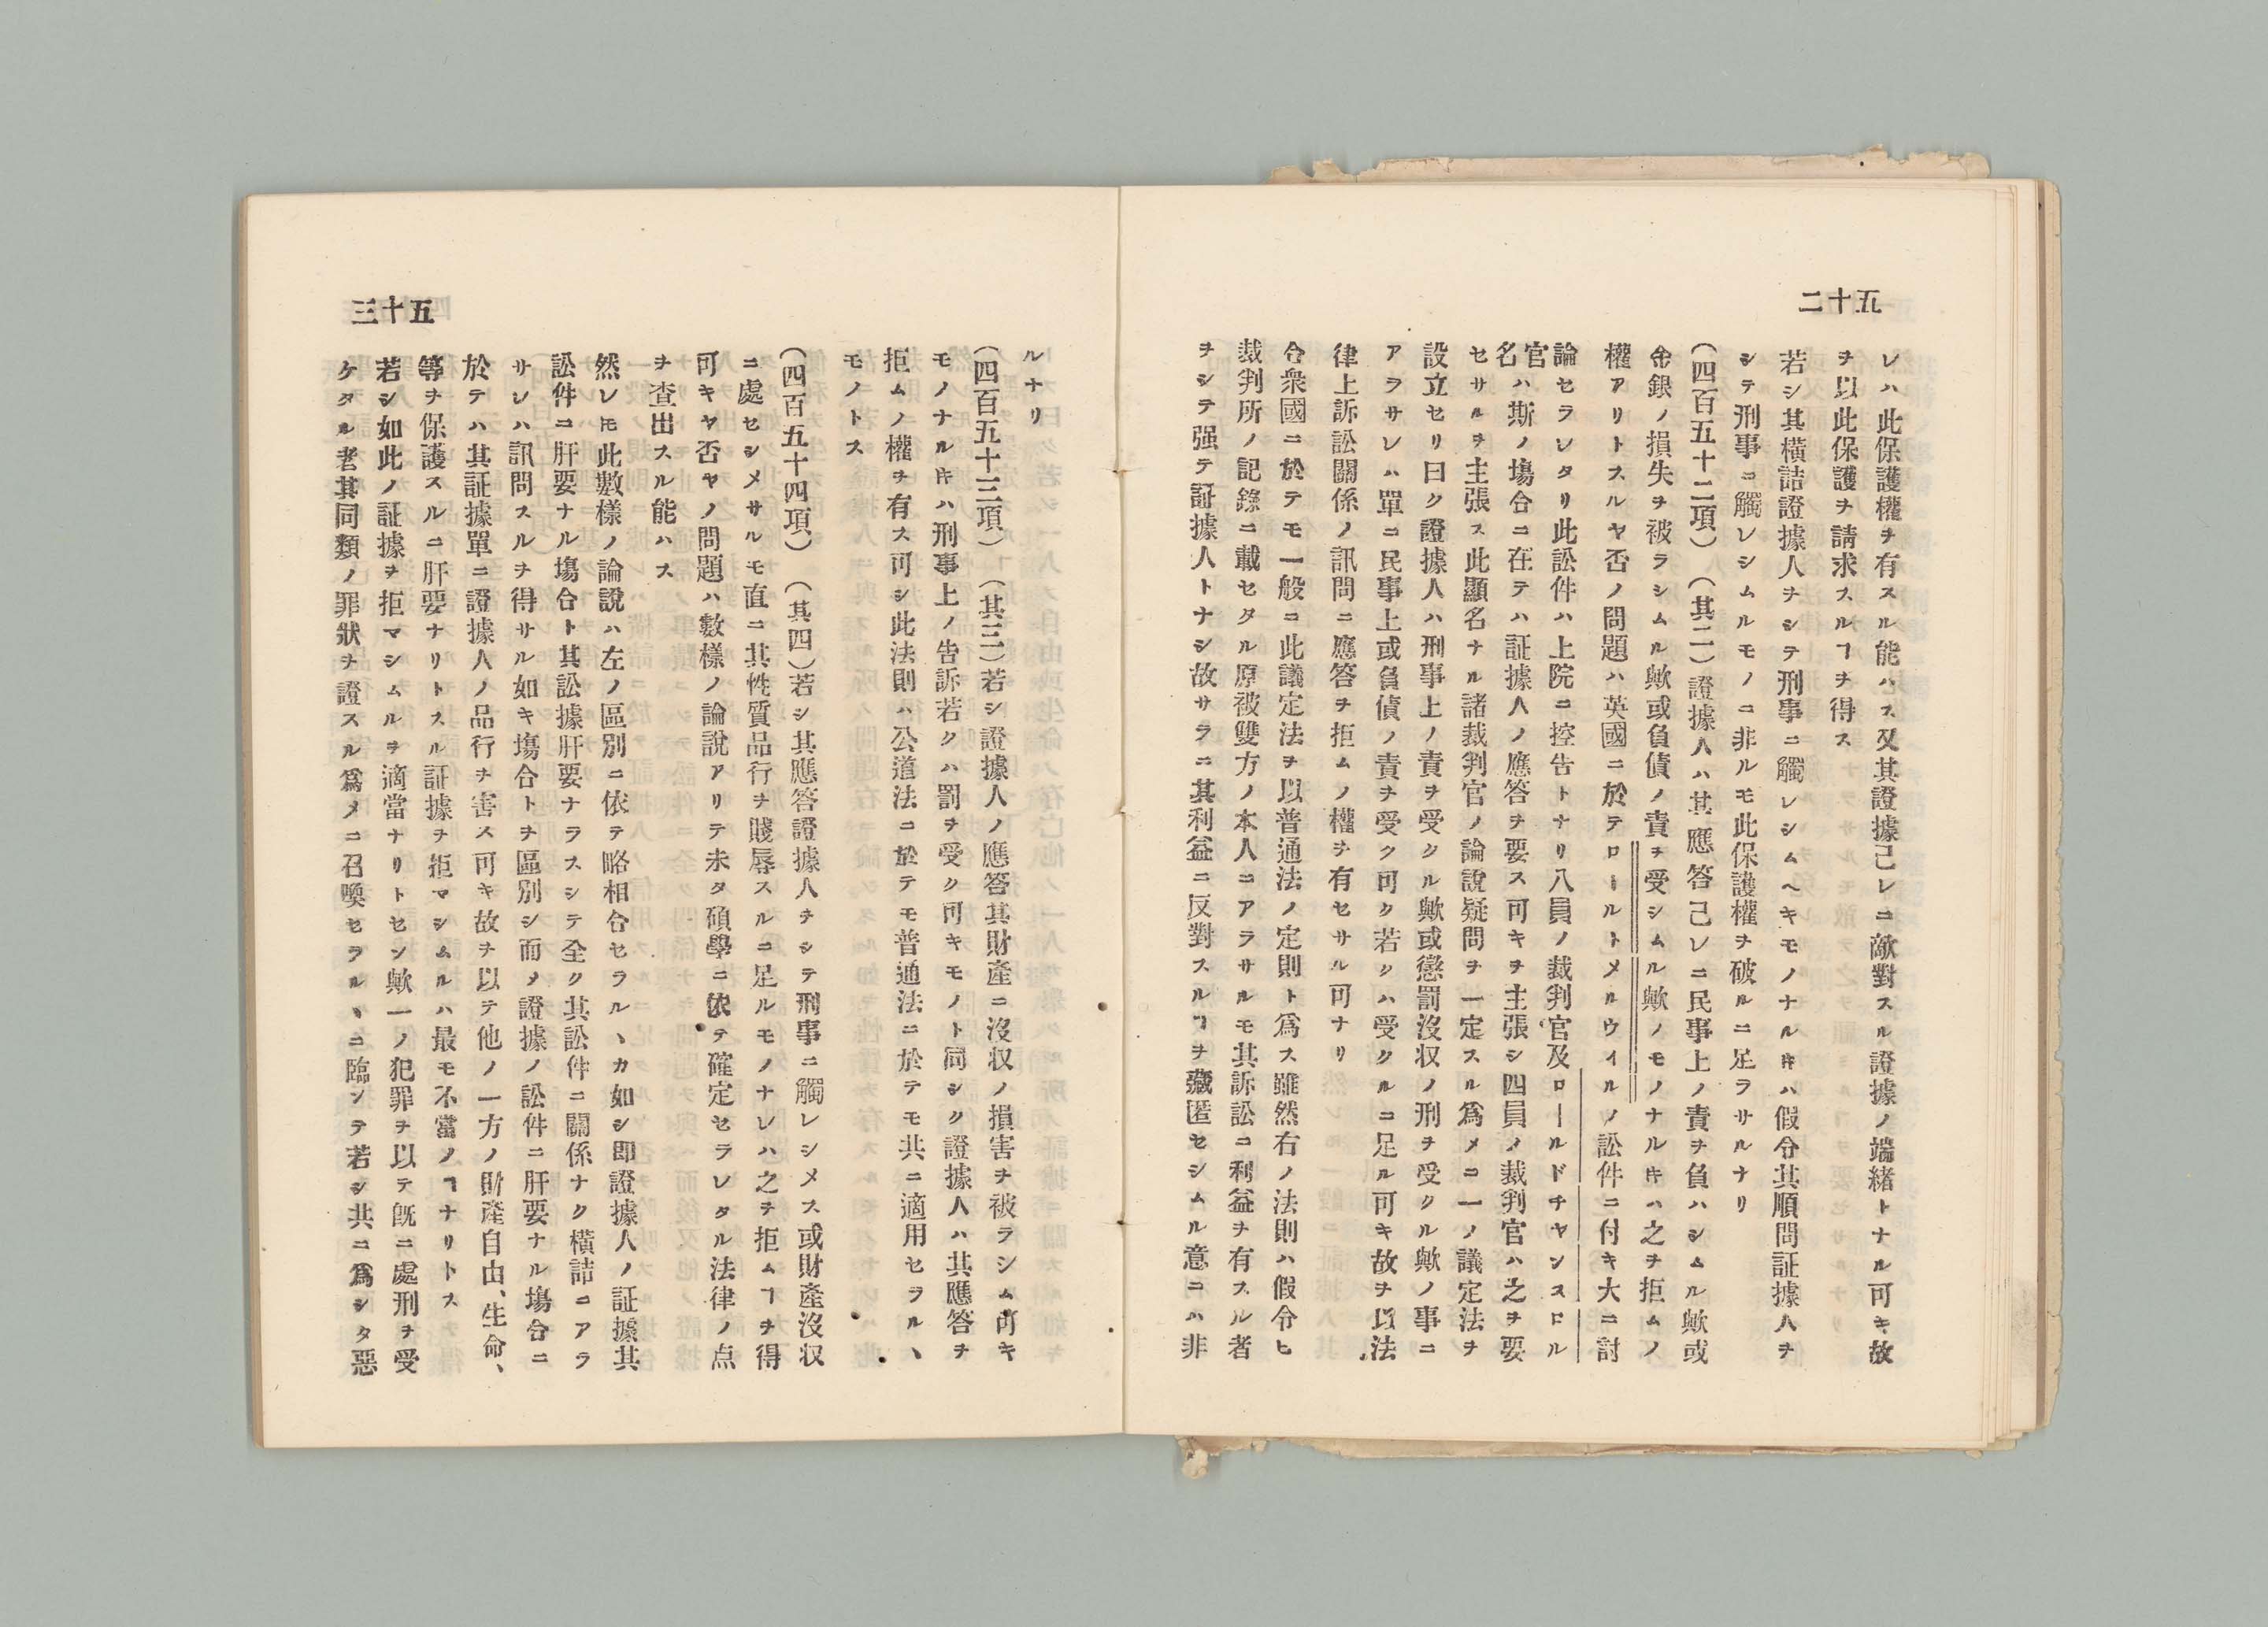 五十二
レハ此保護權ヲ有スル能ハス又其證據己レニ敵對スル證據ノ端緒トナル可キ故
ヲ以此保護ヲ請求スルヿヲ得ス
若シ其横詰證據人ヲシテ刑事ニ觸レシムヘキモノナルキハ假令其順問証據人ヲ
シテ刑事ニ觸レシムルモノニ非ルモ此保護權ヲ破ルニ足ラサルナリ
（四百五十二項）（其二）證據人ハ其應答己レニ民事上ノ責ヲ負ハシムル歟或
金銀ノ損失ヲ被ラシムル歟或負債ノ責ヲ受シムル歟ノモノナルキハ之ヲ拒ムノ
權アリトスルヤ否ノ問題ハ英國ニ於テロールトメルウイルノ訟件ニ付キ大ニ討
論セラレタリ此訟件ハ上院ニ控告トナリ八員ノ裁判官及ロールドチヤンスロル
官名ハ斯ノ塲合ニ在テハ証據人ノ應答ヲ要ス可キヲ主張シ四員ノ裁判官ハ之ヲ要
セサルヲ主張ス此顯名ナル諸裁判官ノ論說疑問ヲ一定スル爲メニ一ノ議定法ヲ
設立セリ曰ク證據人ハ刑事上ノ責ヲ受クル歟或懲罰沒収ノ刑ヲ受クル歟ノ事ニ
アラサレハ單ニ民事上或負債ノ責ヲ受ク可ク若クハ受クルニ足ル可キ故ヲ以法
律上訴訟關係ノ訊問ニ應答ヲ拒ムノ權ヲ有セサル可ナリ
合衆國ニ於テモ一般ニ此議定法ヲ以普通法ノ定則ト爲ス雖然右ノ法則ハ假令ヒ
裁判所ノ記錄ニ載セタル原被雙方ノ本人ニアラサルモ其訴訟ニ利益ヲ有スル者
ヲシテ强テ証據人トナシ故サラニ其利益ニ反對スルヿヲ藏匿セシムル意ニハ非
五十三
ルナリ
（四百五十三項）（其三）若シ證據人ノ應答其財產ニ沒収ノ損害ヲ被ラシム可キ
モノナルキハ刑事上ノ告訴若クハ罰ヲ受ク可キモノト同シク證據人ハ其應答ヲ
拒ムノ權ヲ有ス可シ此法則ハ公道法ニ於テモ普通法ニ於テモ共ニ適用セラルヽ
モノトス
（四百五十四項）（其四）若シ其應答證據人ヲシテ刑事ニ觸レシメス或財產沒収
ニ處セシメサルモ直ニ其性質品行ヲ賤辱スルニ足ルモノナレハ之ヲ拒ムヿヲ得
可キヤ否ヤノ問題ハ數樣ノ論說アリテ未タ碩學ニ依テ確定セラレタル法律ノ点
ヲ査出スル能ハス
然レ𪜈此數樣ノ論說ハ左ノ區別ニ依テ略相合セラルヽカ如シ即證據人ノ証據其
訟件ニ肝要ナル塲合ト其訟據肝要ナラスシテ全ク其訟件ニ關係ナク横詰ニアラ
サレハ訊問スルヲ得サル如キ塲合トヲ區別シ而メ證據ノ訟件ニ肝要ナル塲合ニ
於テハ其証據單ニ證據人ノ品行ヲ害ス可キ故ヲ以テ他ノ一方ノ財產自由、生命、
等ヲ保護スルニ肝要ナリトスル証據ヲ拒マシムルハ最モ不當ノヿナリトス
若シ如此ノ証據ヲ拒マシムルヲ適當ナリトセン歟一ノ犯罪ヲ以テ旣ニ處刑ヲ受
ケタル者其同類ノ罪狀ヲ證スル爲メニ召喚セラルヽニ臨ンテ若シ共ニ爲シタ惡